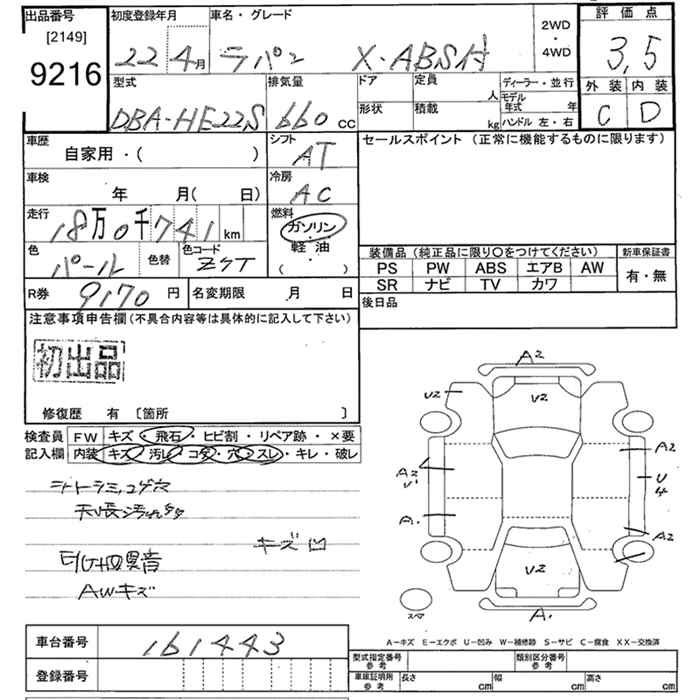 出品番号
[2149]
9216
初度登録年月
22 4月
車名・グレード
ラパン X・ABS付
2WD
・
4WD
評価点
3,5
外装 内装
C D
型式
DBA-HE22S
排気量
660 cc
ドア
形状
定員
人
積載
kg
ディーラー・並行
モデル
年式 年
ハンドル 左・右
車歴
自家用・( )
シフト
AT
セールスポイント (正常に機能するものに限ります)
車検
年 月( 日)
冷房
AC
走行
18万0千741 km
燃料
ガソリン
・
軽・油
( )
色
パール
色替
色コード
Z7T
装備品 (純正品に限り○をつけてください)
PS PW ABS エアB AW
SR ナビ TV カワ
新車保証書
有・無
R券 9170 円
名変期限 月 日
後日品
注意事項申告欄(不具合内容等は具体的に記入して下さい)
初出品
修復歴 有 〔箇所 〕
検査員
記入欄
FW キズ・飛石・ヒビ割・リペア跡・×要
内装 キズ・汚レ・コゲ・穴・スレ・キレ・破レ
シートシミ、コゲ穴
天張汚れ
キズ凹
異音
AWキズ
A2
U2
V2
A2
A2
U
4
A1
A2
V2
A1
スペア
A-キズ E-エクボ U-凹み W-補修跡 S-サビ C-腐食 XX-交換済
車台番号 161443
登録番号
型式指定番号
参考
類別区分番号
参考
車庫証明用
参考
長さ cm
幅 cm
高さ cm